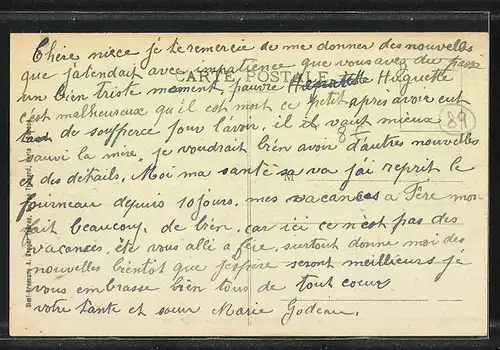 Chère nièce je te remercie de me donner des nouvelles
que j'atendait avec impatience que vous avez du passer
CARTE POSTALE
un bien triste moment, pauvre Huguette
c'est malheureux qu'il est mort ce petit après avoir eut
de soufferce pour l'avoir, il il vaut mieux
89
sauvi la mère, je voudrait bien avoir d'autres nouvelles
et des détails. Moi ma santé sa va j'ai reprit le
M
fourneau depuis 10 jours, mes vacances a Fère mon
fait beaucoup de bien, car ici ce n'est pas des
vacances, été vous allé a fère, surtout donne moi des
nouvelles bientot que j'espère seront meilleurs je
vous embrasse bien tous de tout cœur
votre tante et sœur Marie Godeau.